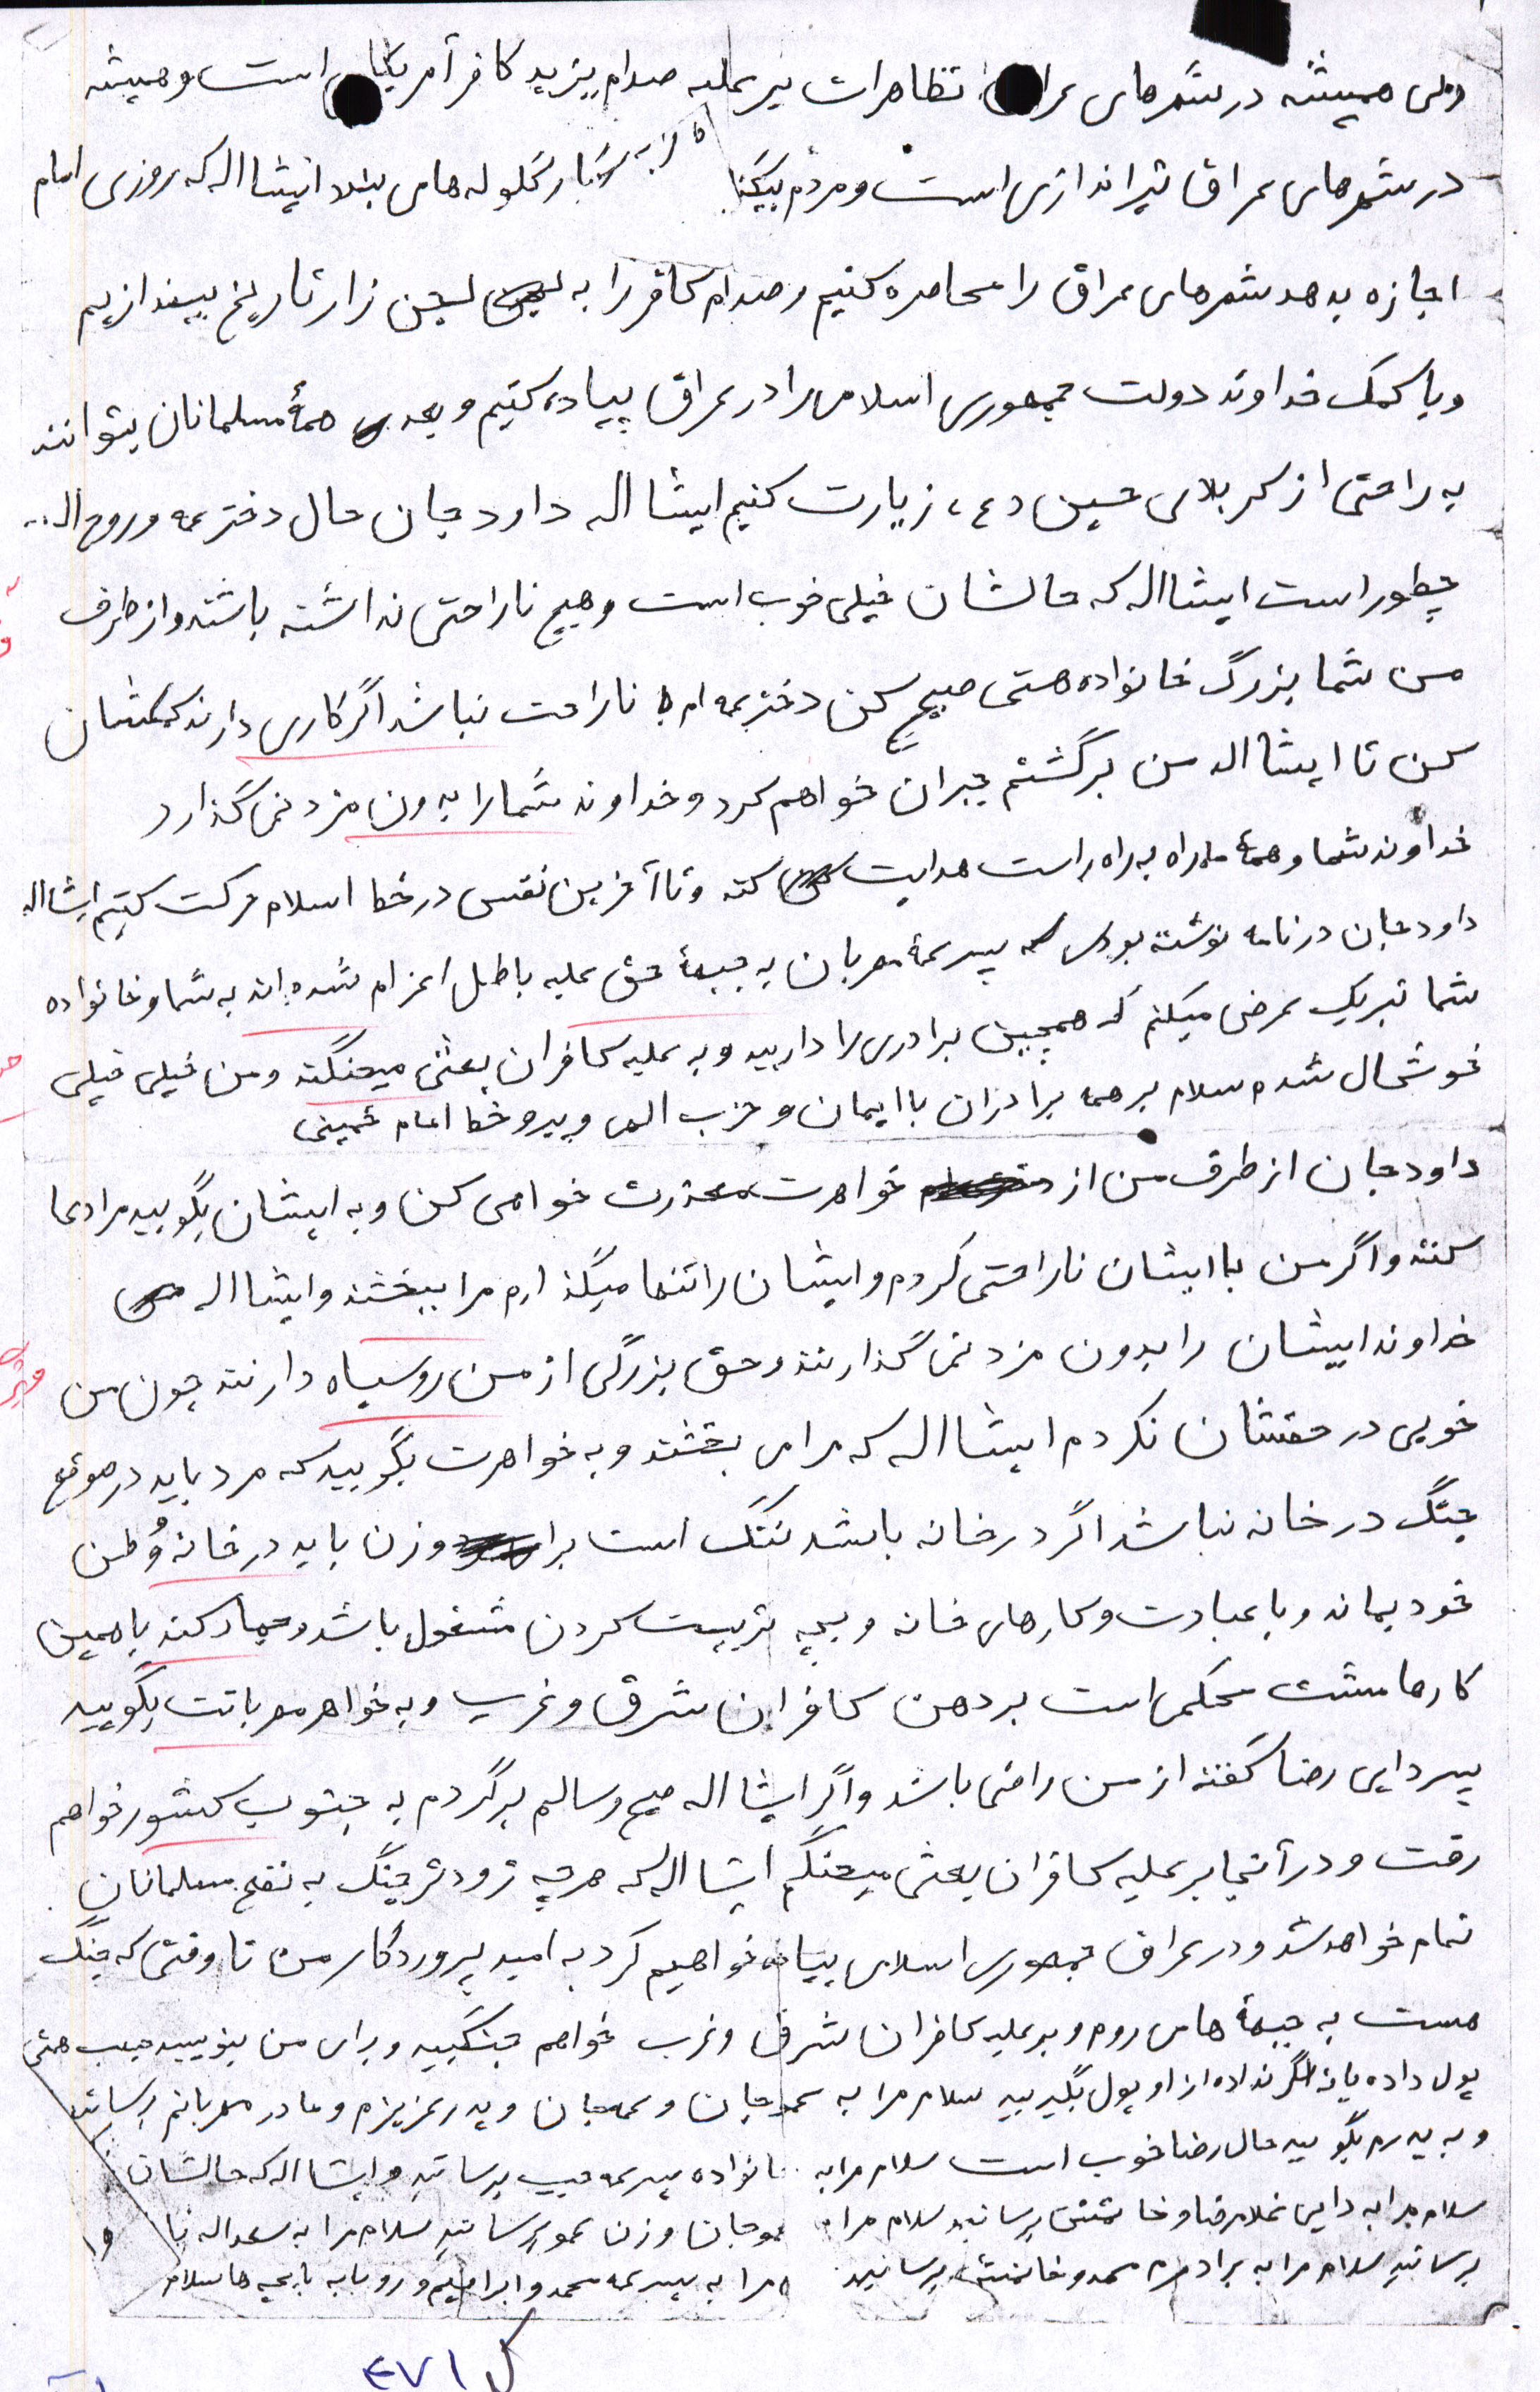 ولی همیشه در شهرهای عراق تظاهرات بر علیه صدام یزید کافر آمریکای است و همیشه
در شهرهای عراق تیراندازی است و مردم بیگناه را به رگبار گلوله های بندد انیشااله که روزی امام
اجازه بدهد شهرهای عراق را محاصره کنیم و صدام کافر را به لجن زار تاریخ بیندازیم
و با کمک خداوند دولت جمهوری اسلامی را در عراق پیاده کنیم و بعد همهٔ مسلمانان بتوانند
به راحتی از کربلای حسین (ع) زیارت کنیم ایشااله داود جان حال دختر عمه و روح اله...
چطور است ایشااله که حالشان خیلی خوب است و هیچ ناراحتی نداشته باشند و از طرف
من شما بزرگ خانواده هستی صبیح کن دختر عمه ام ناراحت نباشد اگر کاری دارند کمکشان
کن تا ایشااله من برگشتم جبران خواهم کرد و خداوند شما را بدون مزد نمی گذارد
خداوند شما و همهٔ ما را به راه راست هدایت کند و تا آخرین نفس در خط اسلام حرکت کنیم ایشااله
داود جان در نامه نوشته بودی که پسر عمهٔ مهربان به جبههٔ حق علیه باطل اعزام شده اند به شما و خانواده
شما تبریک عرض میکنم که همچین برادری را دارید و به علیه کافران بعثی میجنگند و من خیلی خیلی
خوشحال شدم سلام بر همه برادران با ایمان و حزب الهی و پیرو خط امام خمینی
داود جان از طرف من از خواهرت معذرت خواهی کن و به ایشان بگویید مرا دعا
کنند و اگر من با ایشان ناراحتی کردم و ایشان را تنها میگذارم مرا ببخشند و ایشااله
خداوند ایشان را بدون مزد نمی گذارند و حق بزرگی از من روسیاه دارند چون من
خوبی در حقشان نکردم ایشااله که مرا می بخشند و به خواهرت بگویید که مرد باید در موقع
جنگ در خانه نباشد اگر در خانه باشد ننگ است برا و زن باید در خانه وُطن
خود بماند و با عبادت و کارهای خانه و بچه تربیت کردن مشغول باشد و جهاد کند با همین
کارها مشت محکمی است بر دهن کافران شرق و غرب و به خواهر مهربانت بگویید
پسر دایی رضا گفته از من راضی باشد و اگر ایشااله صیح و سالم برگردم به جنوب کشور خواهم
رفت و در آنجا بر علیه کافران بعثی میجنگم ایشااله که هر چه زودتر جنگ به نفع مسلمانان
تمام خواهد شد و در عراق جمهوری اسلامی پیاده خواهیم کرد به امید پروردگار من تا وقتی که جنگ
هست به جبههٔ های روم و بر علیه کافران شرق و غرب خواهم جنگیید و برای من بنویسید حبیب حتی
پول داده یا نه اگر نداده از او پول بگیرید سلام مرا به عمو جان و عمه جان و پدر عزیزم و مادر مهربانم برسانید
و به پدرم بگویید حال رضا خوب است سلام مرا به خانواده پسر عمه حبیب برسانید و ایشااله که حالشان
سلام مرا به دایی غلامرضا و خانمش برسانید سلام مرا به عمو جان و زن عمو برسانید سلام مرا به سعداله نیا
برسانید سلام مرا به برادرم محمد و خانمش برسانید مرا به پسر عمه محمد و ابراهیم و رویا به با بچه ها سلام
ل ۴۷۱